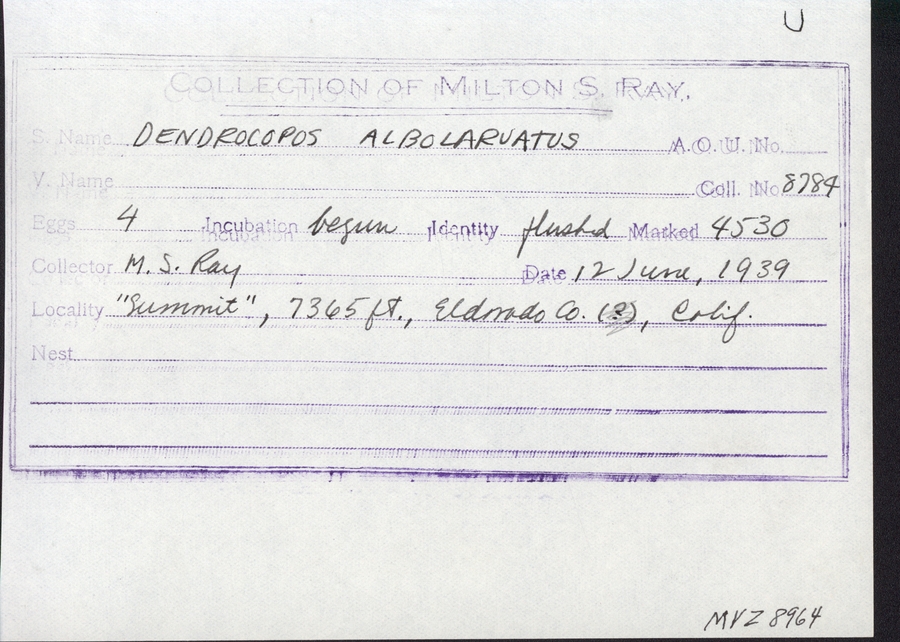 U
COLLECTION OF MILTON S. RAY.
S. Name DENDROCOPOS ALBOLARVATUS A. O. U. No.
V. Name Coll. No. 8784
Eggs 4 Incubation begun Identity flushed Marked 4530
Collector M. S. Ray Date 12 June, 1939
Locality "Summit", 7365 ft., Eldorado Co. (?), Calif.
Nest
MVZ 8964